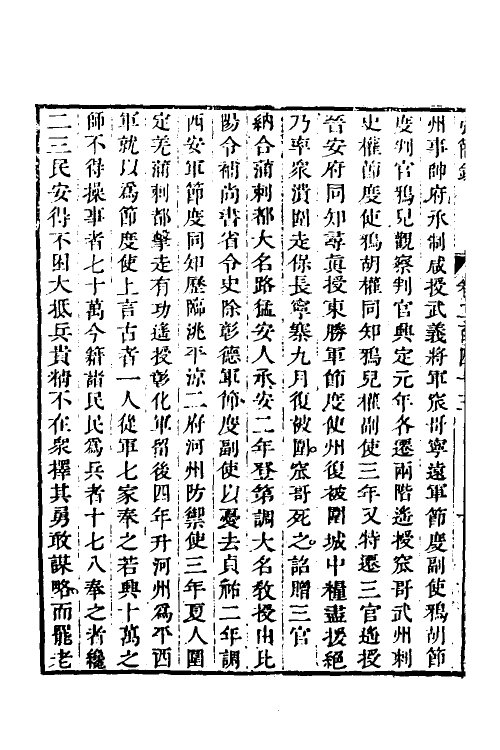 州事帥府承制咸授武義將軍窊哥寧遠軍節度副使鴉胡節
度判官鴉兒觀察判官興定元年各遷兩階遙授窊哥武州刺
史權節度使鴉胡權同知鴉兒權副使三年又特遷三官遙授
晉安府同知尋眞授東勝軍節度使州復被圍城中糧盡援絕
乃率衆潰圍走保長寧寨九月復被圍窊哥死之詔贈三官
納合蒲剌都大名路猛安人承安二年登第調大名敎授由比
陽令補尚書省令史除彰德軍節度副使以憂去貞祐二年調
西安軍節度同知歷臨洮平涼二府河州防禦使三年夏人圍
定羌蒲剌都擊走有功遙授彰化軍留後四年升河州爲平西
軍就以爲節度使上言古者一人從軍七家奉之若興十萬之
師不得操事者七十萬今籍諸民民爲兵者十七八奉之者纔
二三民安得不困大抵兵貴精不在衆擇其勇敢謀略而罷老